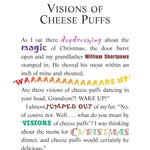 VISIONS OF
CHEESE PUFFS
As I sat there daydreaming about the
magic of Christmas, the door burst
open and my grandfather William Shortpaws
stomped in. He shoved his snout within an
inch of mine and shouted,
"WAAAAAAAAAAAAKE UP!
Were there visions of cheese puffs dancing in
your head, Grandson?? WAKE UP!"
I almost JUMPED OUT of my fur. "No,
of course not. Well . . . what do you mean by
VISIONS of cheese puffs? I was thinking
about the menu for CHRISTMAS
dinner, and cheese puffs would certainly be
delicious."